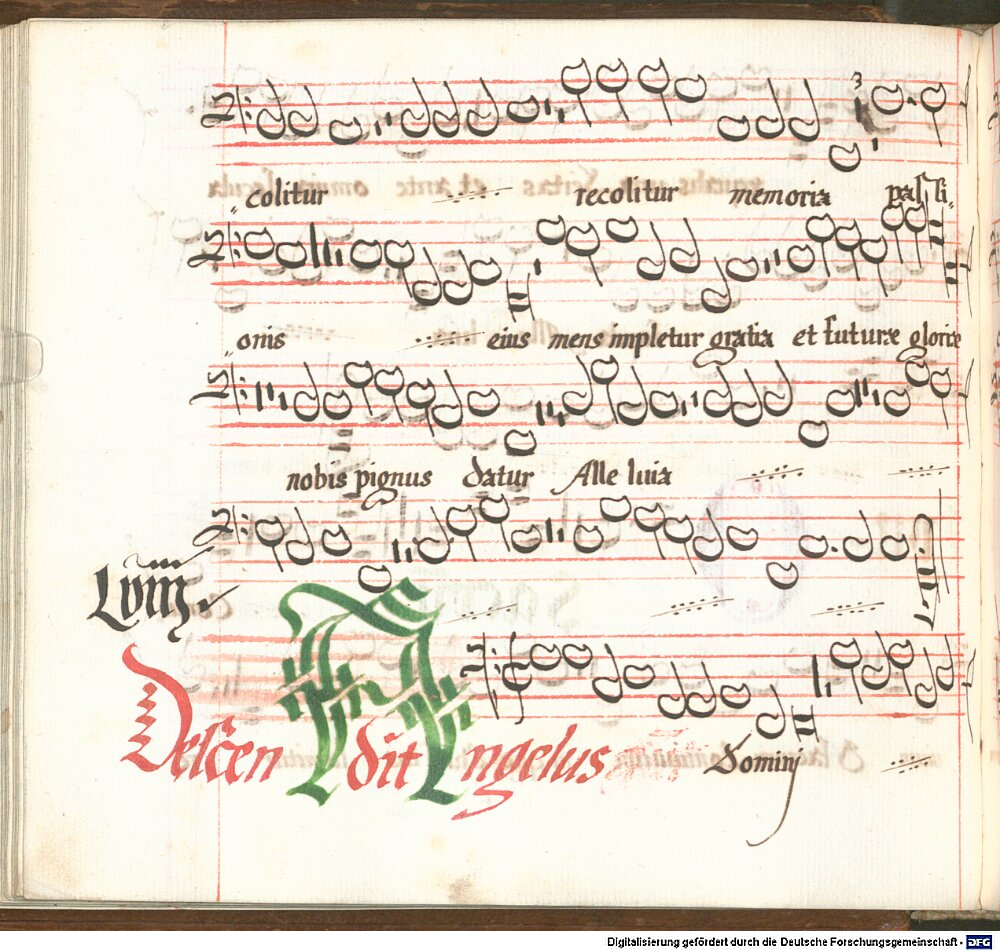 colitur recolitur memoria passi
onis eius mens impletur gratia et futuræ gloriæ
nobis pignus datur Alle luia
Descendit Angelus Dominj
Digitalisierung gefördert durch die Deutsche Forschungsgemeinschaft - DFG